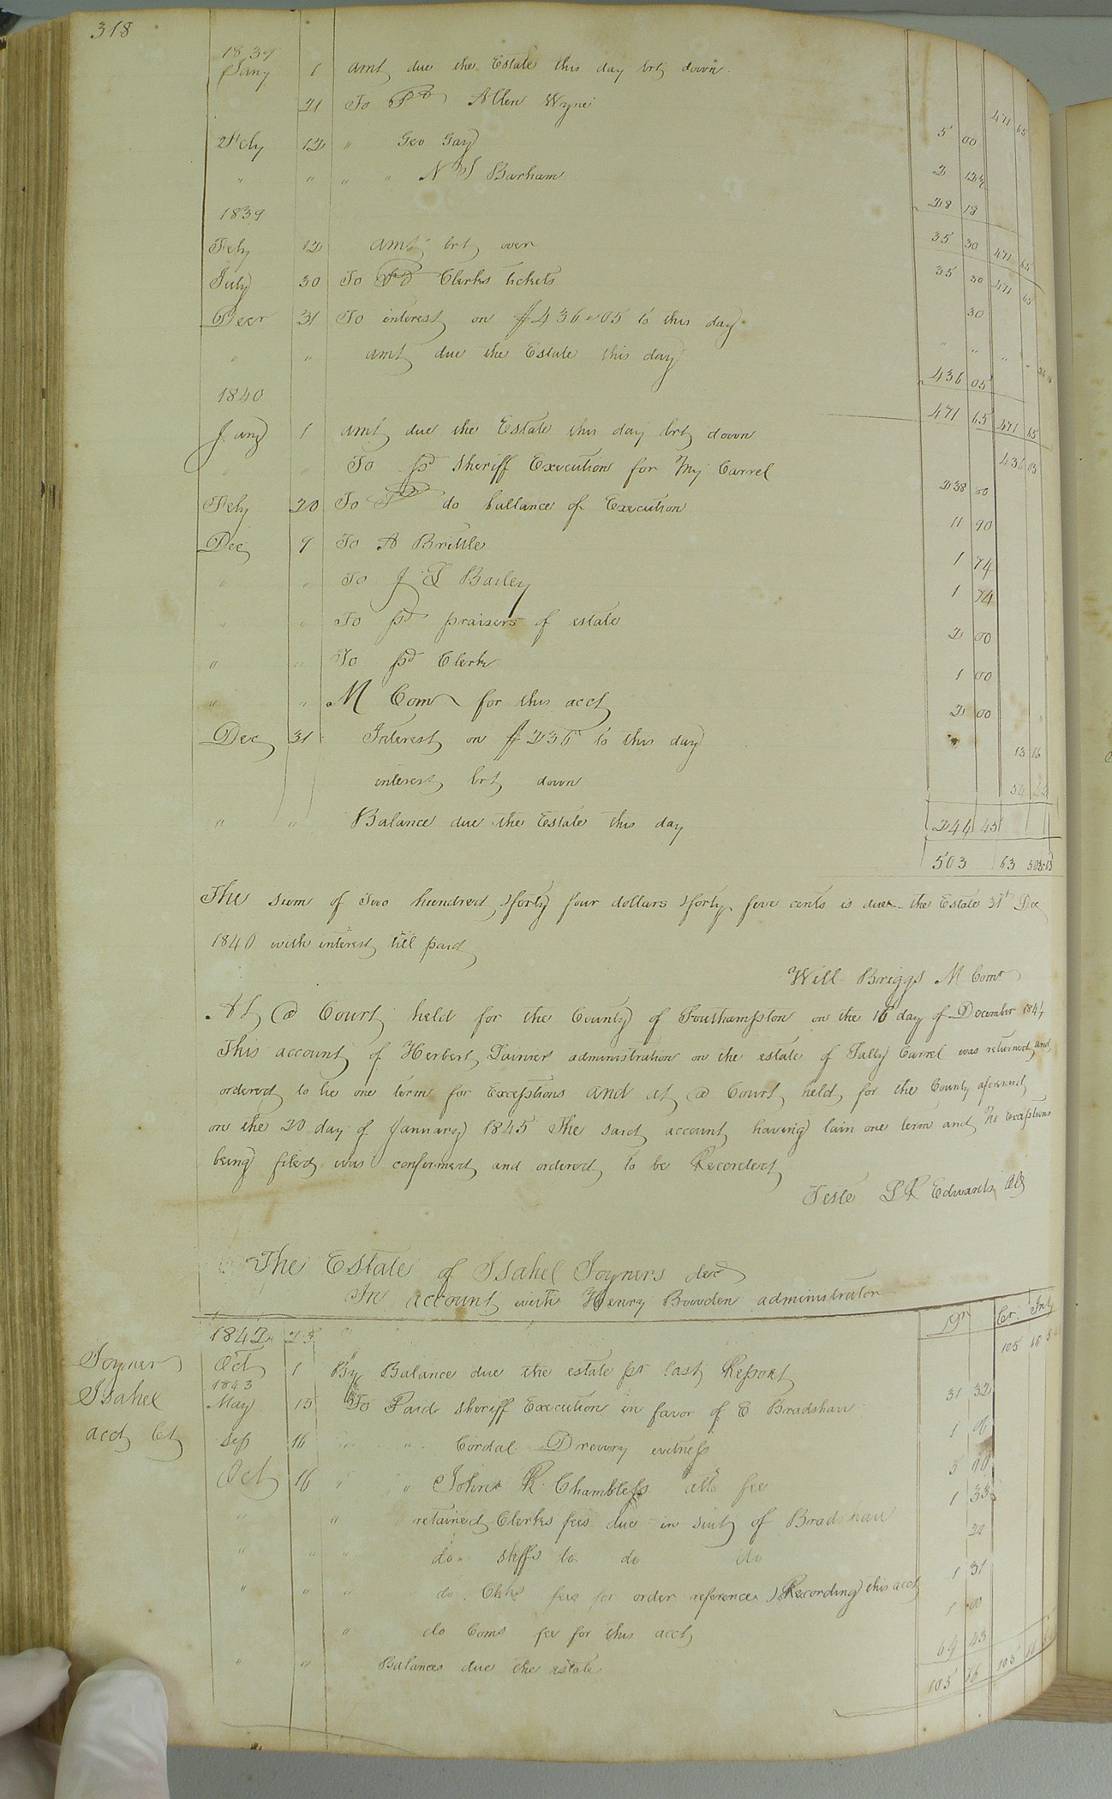 318
1839
Jany 1 amt due the Estate this day brt down 471 65
21 To Pd Allen Wynne 5 00
Feby 12 " Geo Gay 2 12½
" " " " N T Barham 28 18
1839
Feby 12 amt brt over 35 30 471 65
July 30 To Pd Clerks tickets 30
Decr 31 To interest on $436.05 to this day " " " "
" " amt due the Estate this day 436 05
471 65 471 65
1840
Jany 1 amt due the Estate this day brt down 436 05
To pd Sheriff Execution for My Carrel 238 00
Feby 20 To Pd do ballance of Execution 11 90
Dec 9 To A Brittle 1 74
" " To J T Barley 1 74
" " To pd praisers of estate 2 00
" " To pd Clerk 1 00
" " M Com for this acct 2 00
Dec 31 Interest on $235 to this day 13 16
interest brt down
" " Balance due the Estate this day 244 45
503 63 503 63
The sum of Two hundred & forty four dollars & forty five cents is due the Estate 31st Dec
1840 with interest till paid
Will Briggs M Comr
At a Court held for the County of Southampton on the 16 day of December 1844
This account of Herbert Joiners administration on the estate of Sally Carrel was returned and
ordered to lie one term for Exceptions and at a Court held for the County aforesaid
on the 20 day of January 1845 The said account having lain one term and No Exceptions
being filed was confirmed and ordered to be Recorded
Teste L R Edwards Clk
The Estate of Isabel Joyners decd
In account with Henry Bowden administrator
Joyner
Isabel
acct Ct
Dr Cr Int
1842 23
Oct 1 By Balance due the estate pr last Report 105
1843
May 15 To Paid Sheriff Execution in favor of E Bradshaw 31 32
Sep 16 " " Cordal Drewry witness 1 06
Oct 16 " " John R Chambless atto fee
" " retained Clerks fees due in suit of Bradshaw 1 33
" " " do shffs to do do
" " " do Clks fees for order reference & Recording this acct 1 31
" do Coms fee for this acct 1 00
" " Balances due the estate 64 43
105 66 105